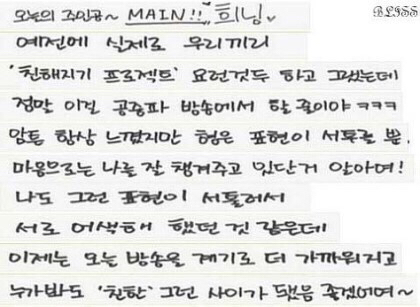 오늘의 주인공~ MAIN!! 희님
BLISS
예전에 실제로 우리끼리
'친해지기 프로젝트' 요런것두 하고 그랬는데
정말 이걸 공중파 방송에서 할 줄이야 ㅋㅋㅋ
암튼 항상 느꼈지만 형은 표현이 서투를 뿐,
마음으로는 나를 잘 챙겨주고 있단거 안아며!
나도 그런 표현이 서툴러서
서로 어색해 했던 것 같은데
이제는 오늘 방송을 계기로 더 가까워지고
누가봐도 '친한' 그런 사이가 됐음 좋겠어여~